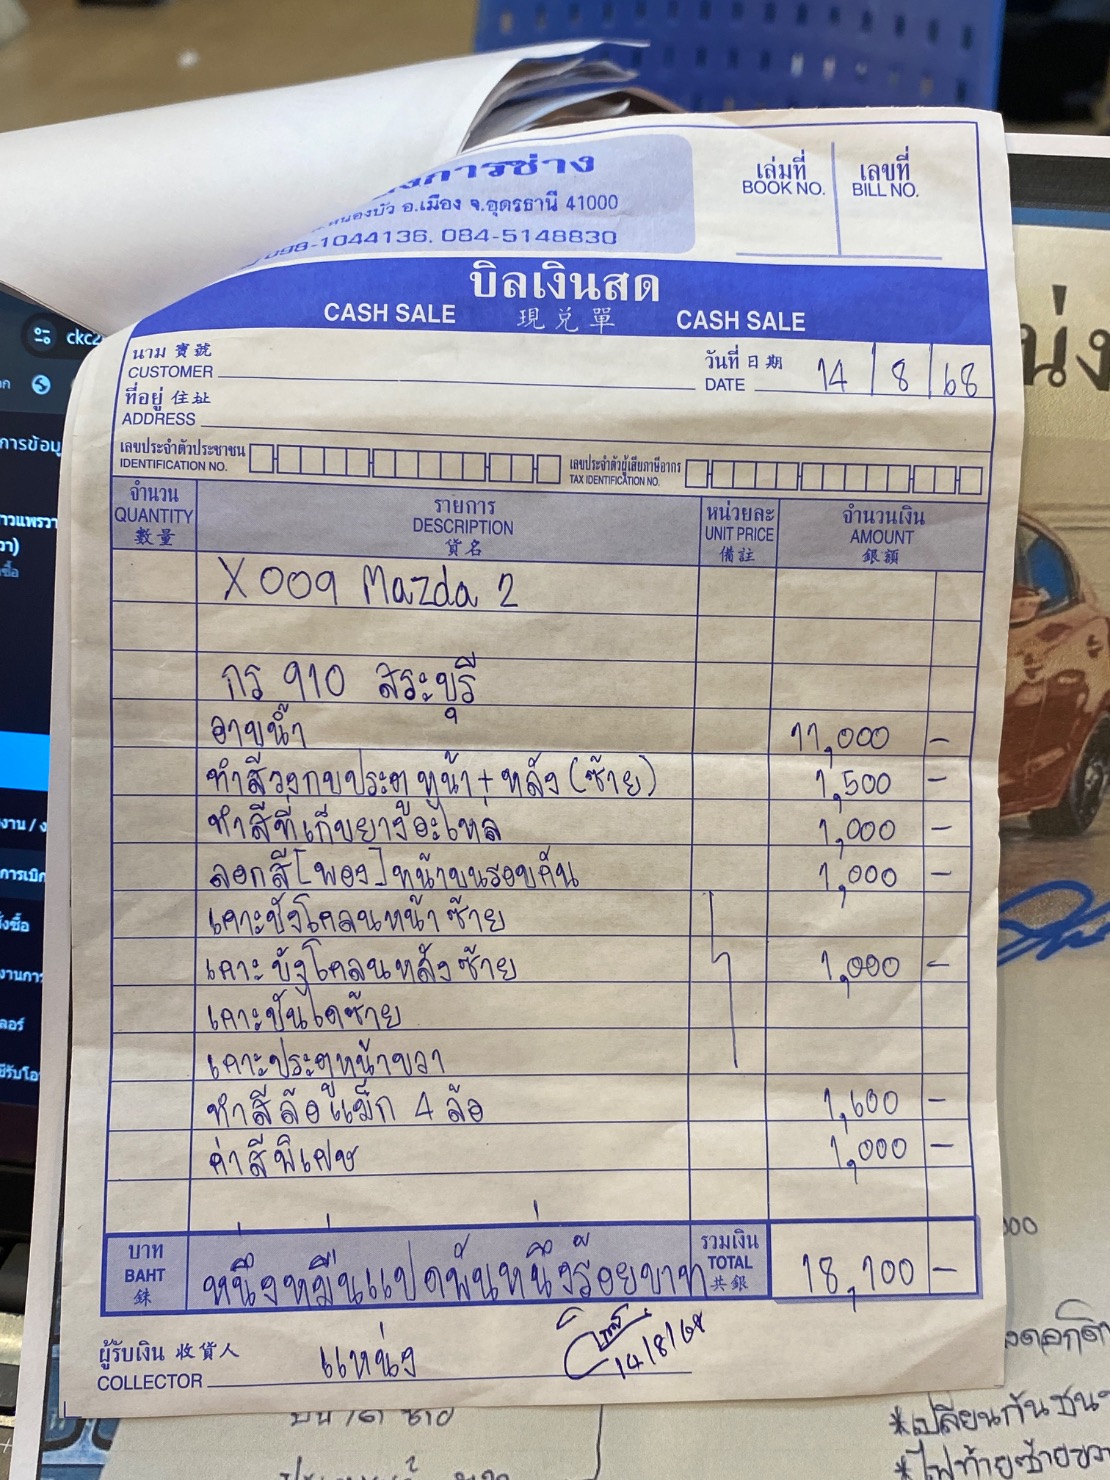 การช่าง
หนองบัว อ.เมือง จ.อุดรธานี 41000
098-1044136, 084-5148830
เล่มที่
BOOK NO.
เลขที่
BILL NO.
บิลเงินสด
CASH SALE 現兌單 CASH SALE
นาม 寶號
CUSTOMER
วันที่ 日期
DATE 14 / 8 / 68
ที่อยู่ 住址
ADDRESS
เลขประจำตัวประชาชน
IDENTIFICATION NO.
เลขประจำตัวผู้เสียภาษีอากร
TAX IDENTIFICATION NO.
จำนวน รายการ หน่วยละ จำนวนเงิน
QUANTITY DESCRIPTION UNIT PRICE AMOUNT
數量 貨名 備註 銀額
X009 Mazda 2
กร 910 สระบุรี
อาบน้ำ 11,000 –
ทำสีวงกบประตูหน้า + หลัง (ซ้าย) 1,500 –
ทำสีที่เก็บยางอะไหล่ 1,000 –
ลอกสี [พอง] หน้าบนรอบคัน 1,000 –
เคาะบังโคลนหน้าซ้าย
เคาะบังโคลนหลังซ้าย 1,000 –
เคาะบันไดซ้าย
เคาะประตูหน้าขวา
ทำสีล้อแม็ก 4 ล้อ 1,600 –
ค่าสีพิเศษ 1,000 –
บาท
BAHT
銖
หนึ่งหมื่นแปดพันหนึ่งร้อยบาท
รวมเงิน
TOTAL
共銀
18,100 –
ผู้รับเงิน 收貨人
COLLECTOR
แหน่ง
14/8/68
ckc2
การข้อมู
าวแพรวา
วา)
งาน / ง
การเบิก
ั่งซื้อ
งานกา
ลอร์
*เปลี่ยนกันชน
*ไฟท้ายซ้ายขวา